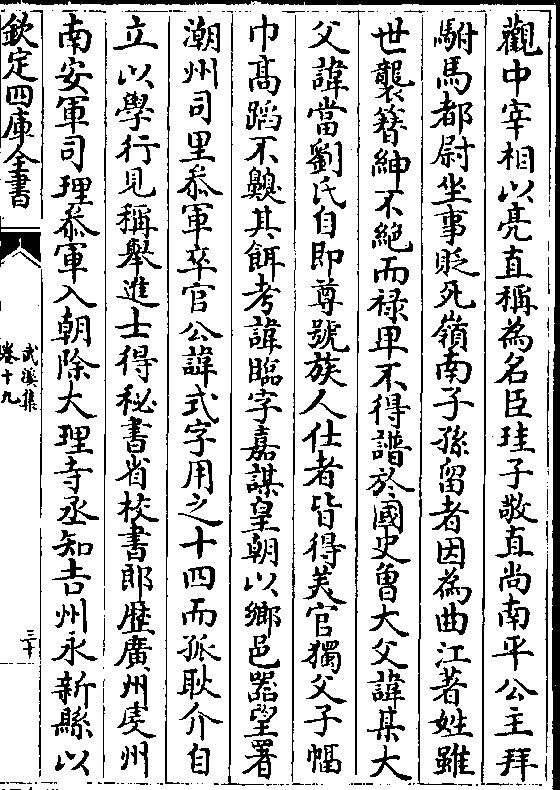 觀中宰相以亮直稱為名臣珪子敬直尚南平公主拜
駙馬都尉坐事貶死嶺南子孫留者因為曲江著姓雖
世襲簪紳不絶而禄卑不得譜於國史曾大父諱某大
父諱當劉氏自即尊號族人仕者皆得美官獨父子幅
巾高蹈不齅其餌考諱臨字嘉謀皇朝以鄉邑器望署
潮州司里叅軍卒官公諱式字用之十四而孤耿介自
立以學行見稱舉進士得秘書省校書郎歴廣州䖍州
南安軍司理叅軍入朝除大理寺丞知吉州永新縣以
欽定四庫全書
武溪集
卷十九
三十